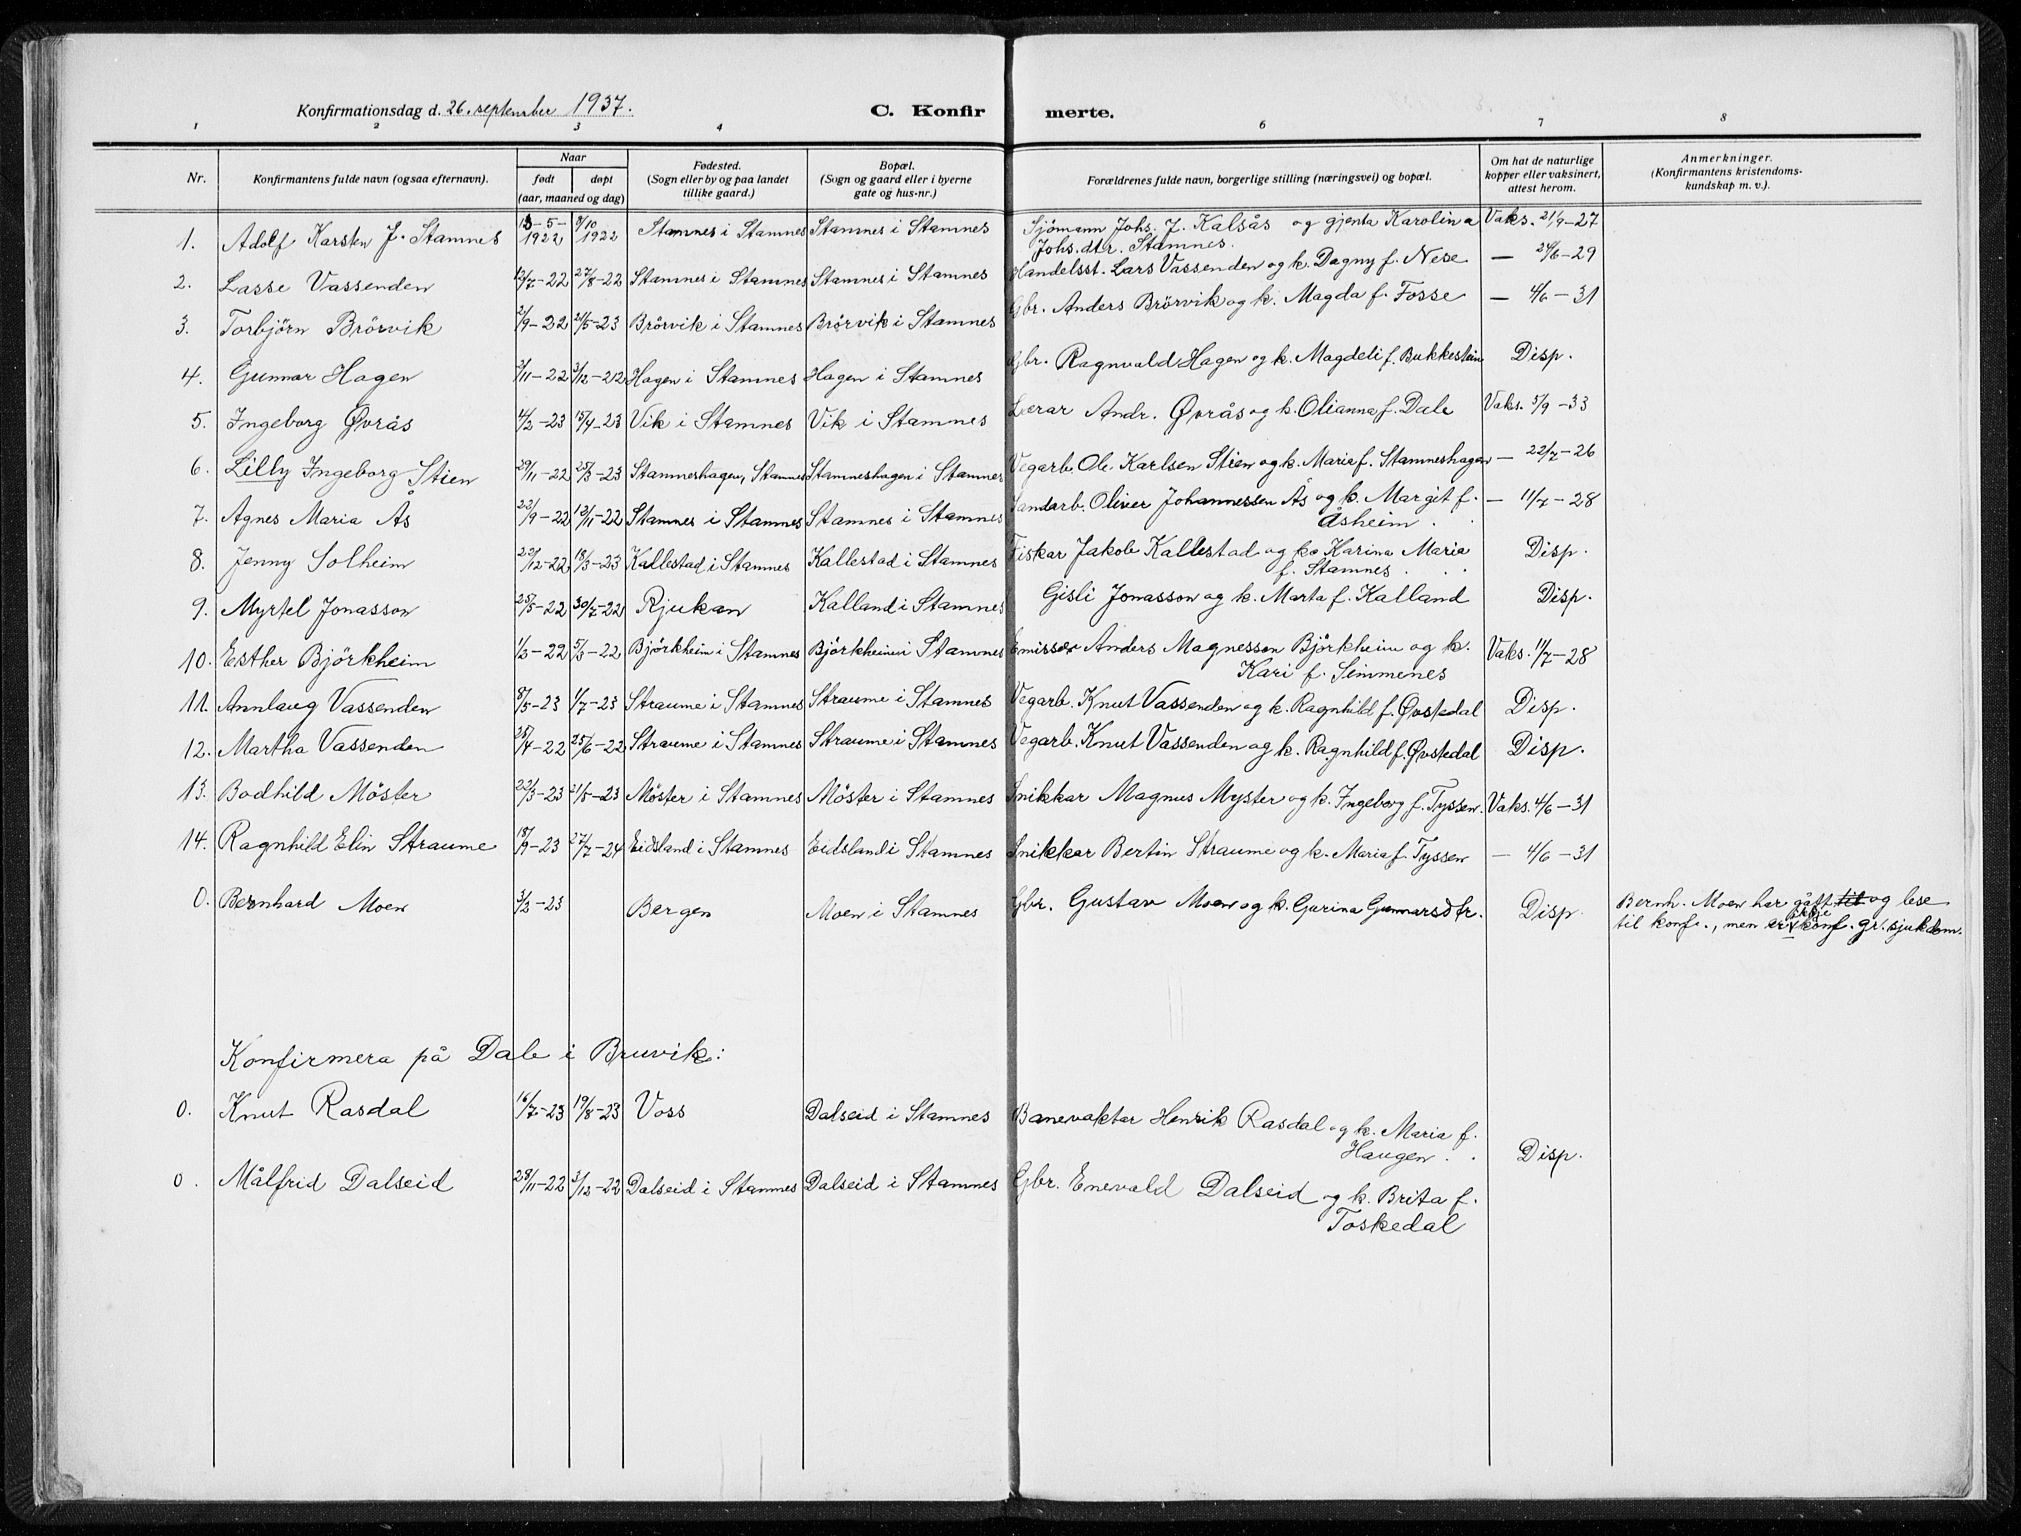 Konfirmationsdag d. 26. september 1937.
C. Konfirmerte.
1 2 3 4 6 7 8
Nr. | Konfirmantens fulde navn (ogsaa efternavn). | Naar født døpt (aar, maaned og dag) | Fødested. (Sogn eller by og paa landet tillike gaard.) | Bopæl. (Sogn og gaard eller i byerne gate og hus-nr.) | Forældrenes fulde navn, borgerlige stilling (næringsvei) og bopæl. | Om hat de naturlige kopper eller vaksinert, attest herom. | Anmerkninger. (Konfirmantens kristendomskundskap m. v.).
1. Adolf Karsten J. Stamnes | 13-5-1922 | 8/10 1922 | Stamnes i Stamnes | Stamnes i Stamnes | Sjömann Johs. J. Kalsås og gjenta Karolina Johs.dtr. Stamnes. | Vaks. 21/9-27
2. Lasse Vassenden | 12/7-22 | 27/8-22 | Stamnes i Stamnes | Stamnes i Stamnes | Handelsst. Lars Vassenden og k. Dagny f. Nese | — 24/6-29
3. Torbjörn Brörvik | 2/9-22 | 21/5-23 | Brörvik i Stamnes | Brörvik i Stamnes | Gbr. Anders Brörvik og k. Magda f. Fosse | — 4/6-31
4. Gunnar Hagen | 3/11-22 | 3/12-212 | Hagen i Stamnes | Hagen i Stamnes | Gbr. Ragnvald Hagen og k. Magdeli f. Bukkestein | Disp.
5. Ingeborg Øvrås | 4/2-23 | 15/4-23 | Vik i Stamnes | Vik i Stamnes | Lærar Andr. Øvrås og k. Olianna f. Dale | Vaks. 5/9-33
6. Lilly Ingeborg Stien | 29/11-22 | 25/3-23 | Stamneshagen, Stamnes | Stamneshagen i Stamnes | Vegarb. Ole Karlsen Stien og k. Maria f. Stamneshagen | — 22/7-26
7. Agnes Maria Ås | 22/9-22 | 12/11-22 | Stamnes i Stamnes | Stamnes i Stamnes | Sandarb. Oliver Johannessen Ås og k. Margit f. Åsheim. | — 11/7-28
8. Jenny Solheim | 22/12-22 | 18/3-23 | Kallestad i Stamnes | Kallestad i Stamnes | Fiskar Jakob Kallestad og k. Karina Maria f. Stamnes. | Disp.
9. Myrtel Jonasson | 25/5-22 | 30/7-22 | Rjukan | Kalland i Stamnes | Gisli Jonasson og k. Marta f. Kalland | Disp.
10. Esther Björkheim | 1/2-22 | 5/3-22 | Björkheim i Stamnes | Björkheim i Stamnes | Emissær Anders Magnessen Björkheim og k. Kari f. Simmenes | Vaks. 11/7-28
11. Annlaug Vassenden | 8/5-23 | 1/7-23 | Straume i Stamnes | Straume i Stamnes | Vegarb. Knut Vassenden og k. Ragnhild f. Øvstedal | Disp.
12. Martha Vassenden | 25/4-22 | 25/6-22 | Straume i Stamnes | Straume i Stamnes | Vegarb. Knut Vassenden og k. Ragnhild f. Øvstedal | Disp.
13. Bodhild Möster | 22/3-23 | 21/5-23 | Möster i Stamnes | Möster i Stamnes | Snikkar Magnus Myster og k. Ingeborg f. Tyssen. | Vaks. 4/6-31
14. Ragnhild Elin Straume | 18/9-23 | 27/7-24 | Eidsland i Stamnes | Eidsland i Stamnes | Snikkar Bertin Straume og k. Maria f. Tyssen | — 4/6-31
0. Bernhard Moen | 3/2-23 | Bergen | Moen i Stamnes | Gbr. Gustav Moen og k. Garina Gunnarsdtr. | Disp. | Bernh. Moen har gått til og lese til konf., men er ikkje konf. gr. sjukdom.
Konfirmera på Dale i Bruvik:
0. Knut Rasdal | 16/7-23 | 19/8-23 | Voss | Dalseid i Stamnes | Banevaktar Henrik Rasdal og k. Maria f. Haugen. | Disp.
0. Målfrid Dalseid | 28/11-22 | 3/12-22 | Dalseid i Stamnes | Dalseid i Stamnes | Gbr. Enevald Dalseid og k. Brita f. Toskedal